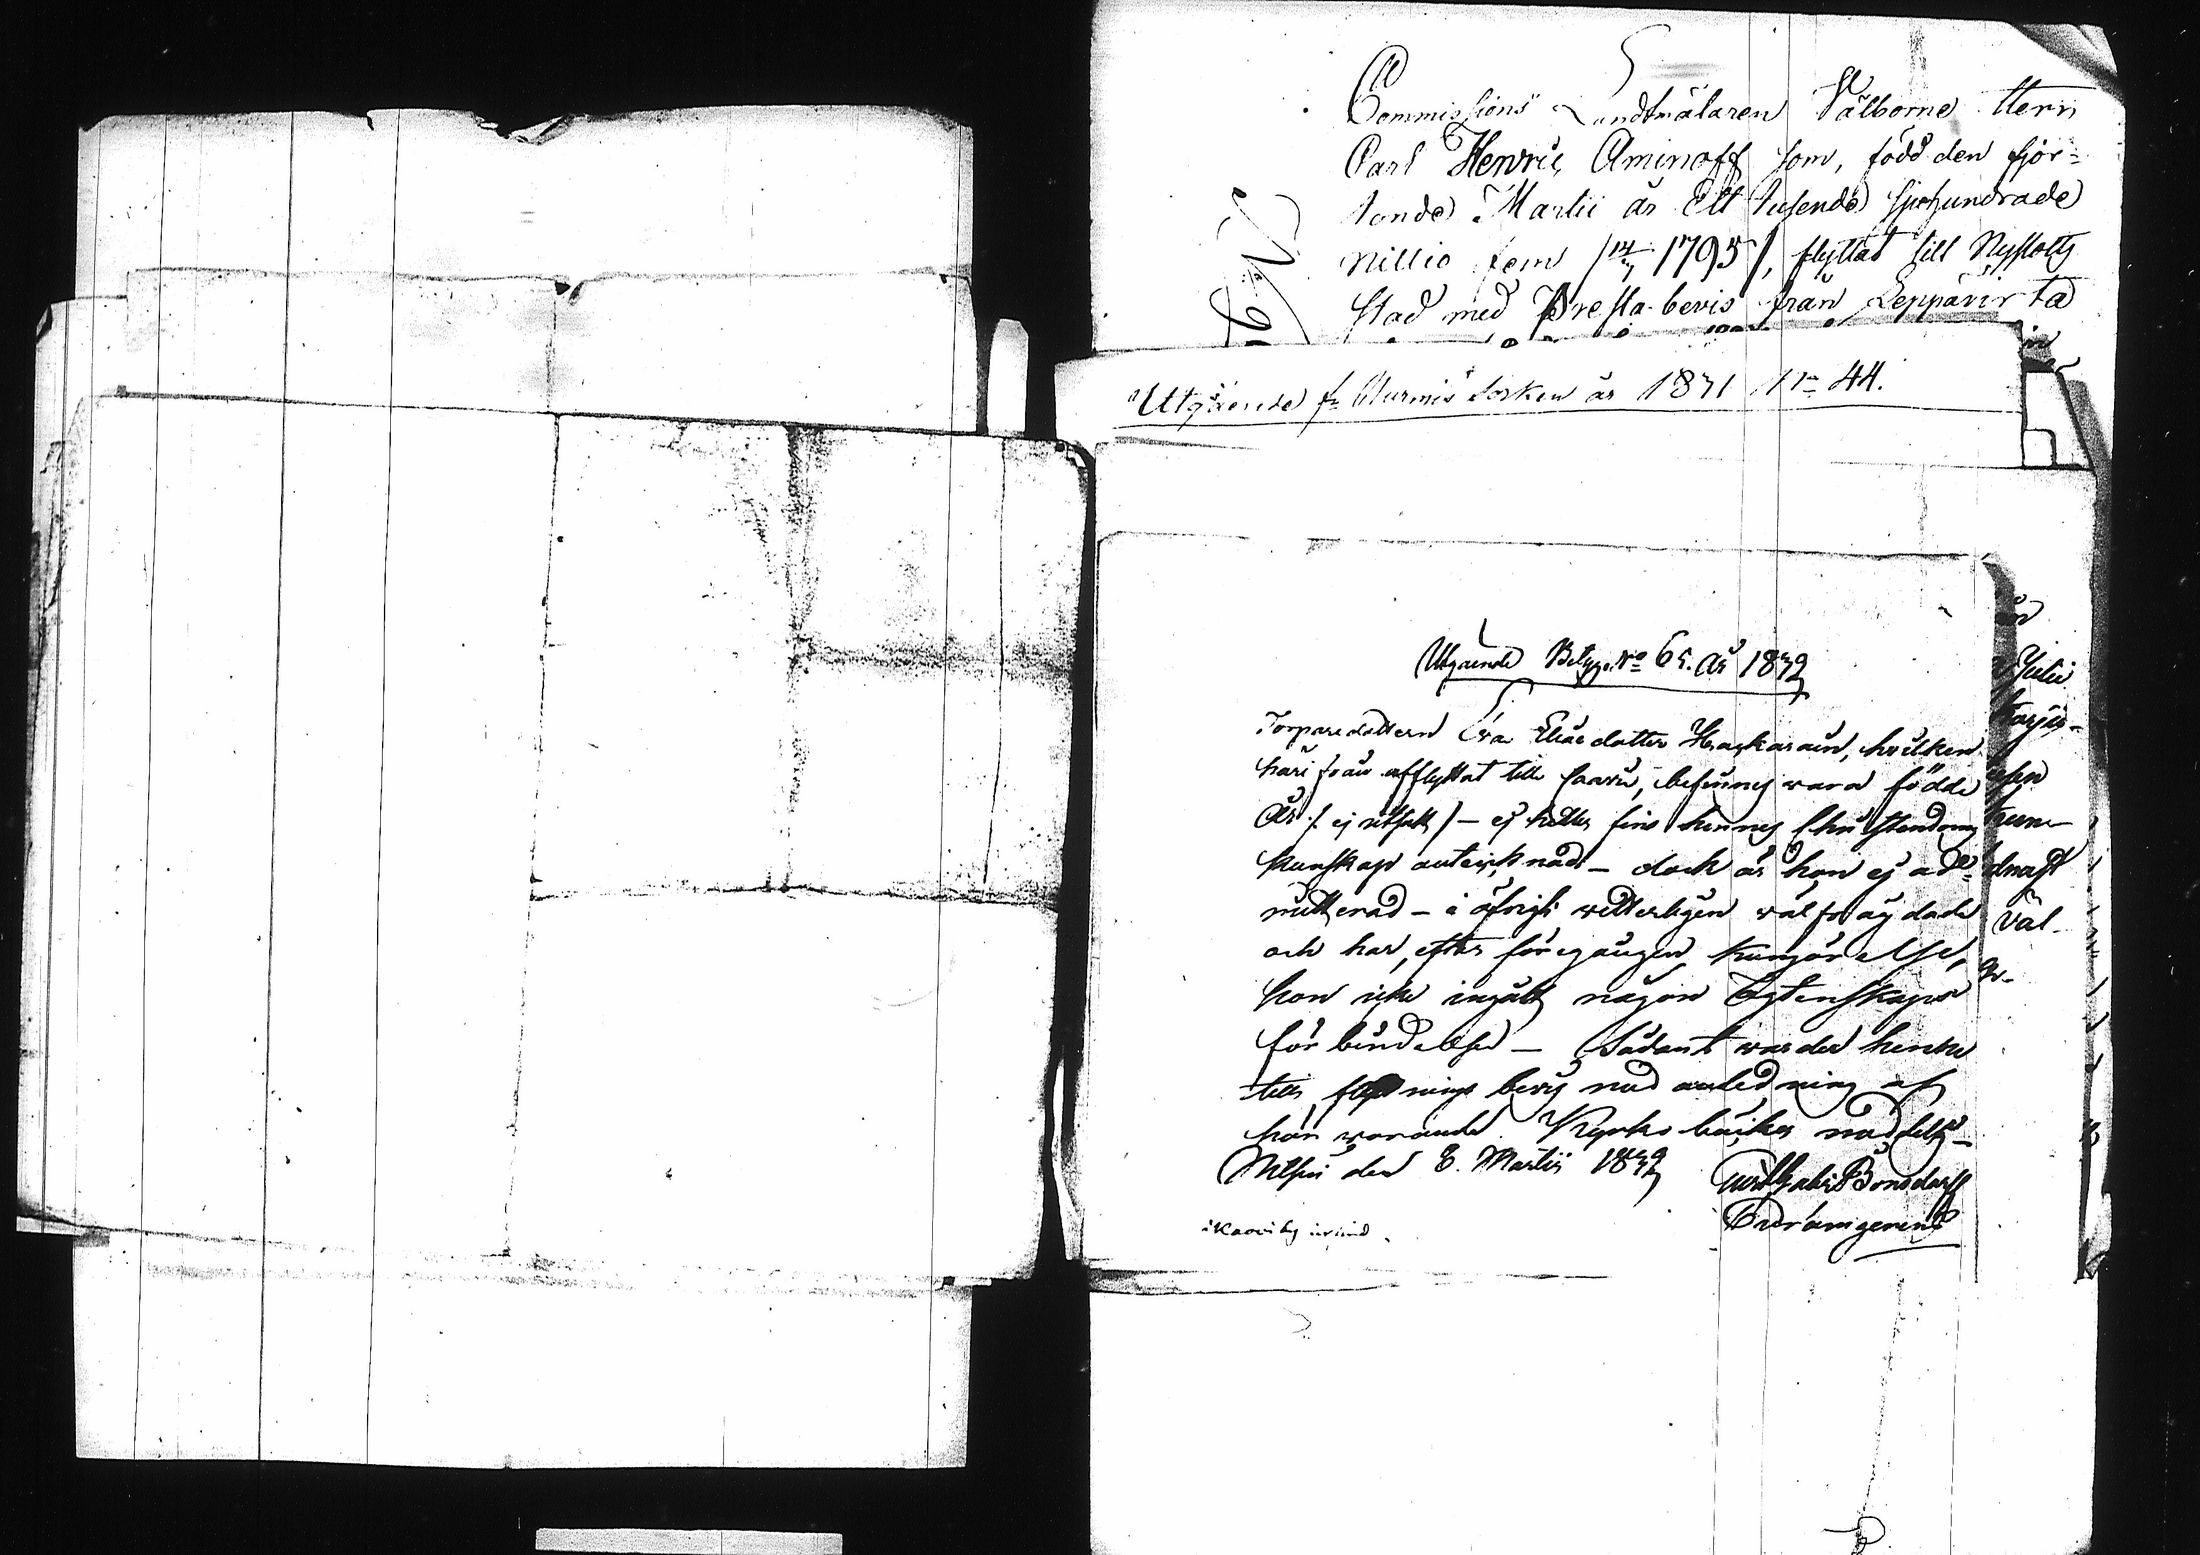 Commissions Landtmätaren Välborne Herr
Carl Henric Aminoff som, född den fjor-
tonde Martii år Ett tusende sjuhundrade
nittio fem / 1795 /, flyttat till Nyslotts
stad med Presta-bevis från Leppävirta
Utgående fr Nurmis Socken år 1831 No 44.
Utgående Betyg. No 65. År 1832
Torparedottern Eva Eliaedotter Haykarain, hvilken
härifrån afflyttat till Kaavi, befinnes vara född
År /: ej utsatt / – ej heller fins hennes Christendoms
kunskap antecknad – dock är hon ej ad-
mitterad – i öfrigt vetterligen väl frägdade
och har, efter föregången kungörelse,
hon icke ingått någon Egtenskaps
förbindelse – Sådant warder henne
till flyttnings bevis med anledning af
här warande Kyrko böcker meddelt –
Nilsiä den 8. Martii 1832
Bonsdorff
i Kaavi by
Julii
Väl-